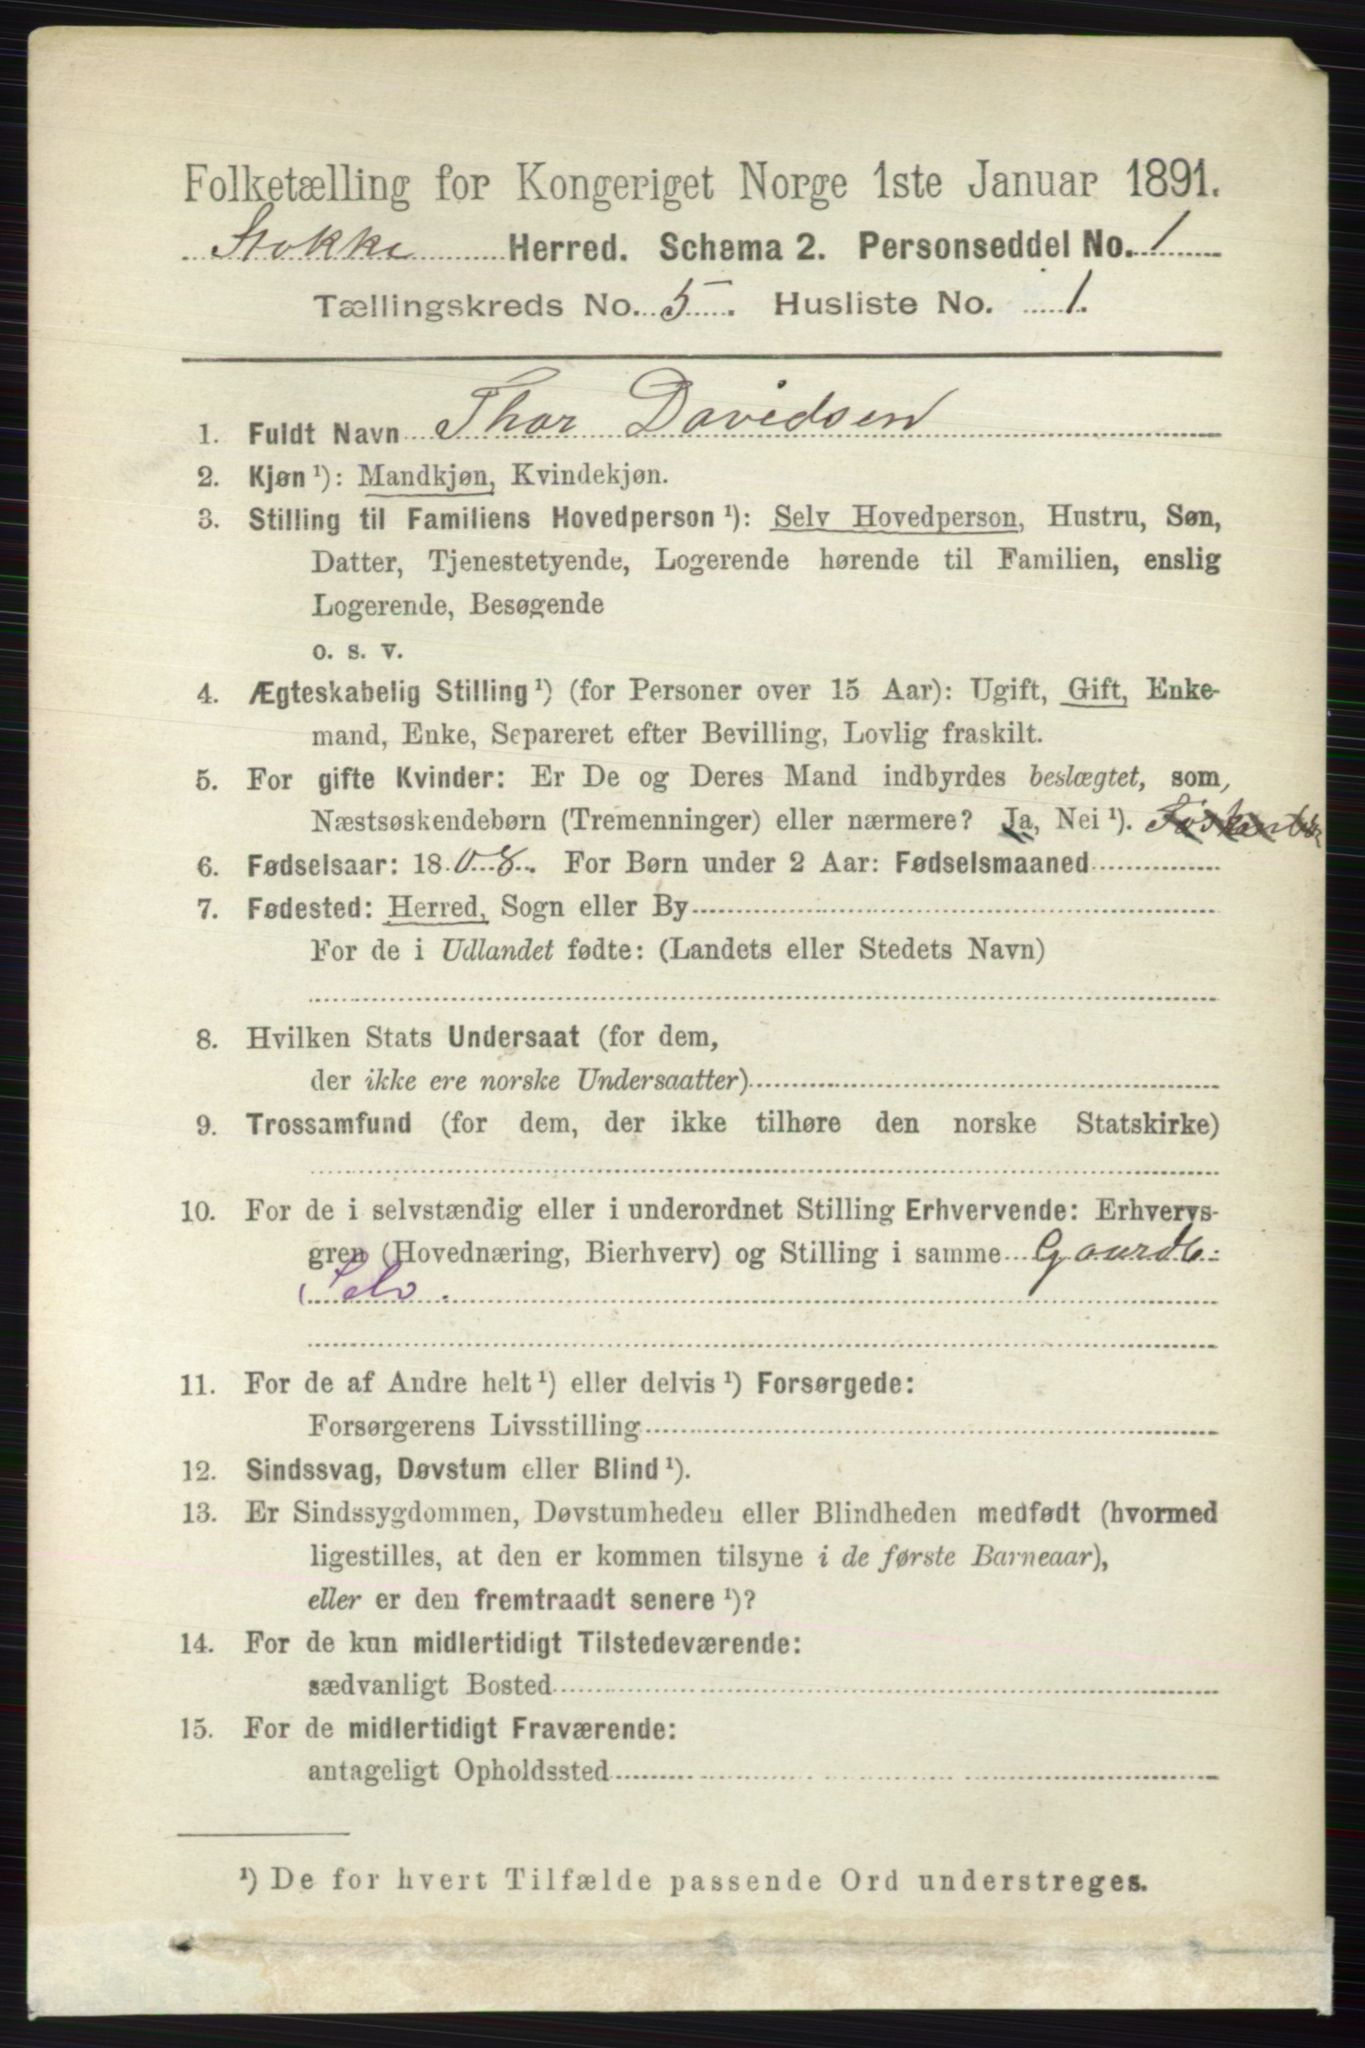 Folketælling for Kongeriget Norge 1ste Januar 1891.
Stokke Herred. Schema 2. Personseddel No. 1
Tællingskreds No. 5. Husliste No. 1.
1. Fuldt Navn Thor Davidsen
2. Kjøn¹): Mandkjøn, Kvindekjøn.
3. Stilling til Familiens Hovedperson¹): Selv Hovedperson, Hustru, Søn,
Datter, Tjenestetyende, Logerende hørende til Familien, enslig
Logerende, Besøgende
o. s. v.
4. Ægteskabelig Stilling¹) (for Personer over 15 Aar): Ugift, Gift, Enke-
mand, Enke, Separeret efter Bevilling, Lovlig fraskilt.
5. For gifte Kvinder: Er De og Deres Mand indbyrdes beslægtet, som,
Næstsøskendebørn (Tremenninger) eller nærmere? Ja, Nei¹).
6. Fødselsaar: 1808. For Børn under 2 Aar: Fødselsmaaned
7. Fødested: Herred, Sogn eller By
For de i Udlandet fødte: (Landets eller Stedets Navn)
8. Hvilken Stats Undersaat (for dem,
der ikke ere norske Undersaatter)
9. Trossamfund (for dem, der ikke tilhøre den norske Statskirke)
10. For de i selvstændig eller i underordnet Stilling Erhvervende: Erhvervs-
gren (Hovednæring, Bierhverv) og Stilling i samme Gaardb:
Selv.
11. For de af Andre helt¹) eller delvis¹) Forsørgede:
Forsørgerens Livsstilling
12. Sindssvag, Døvstum eller Blind¹).
13. Er Sindssygdommen, Døvstumheden eller Blindheden medfødt (hvormed
ligestilles, at den er kommen tilsyne i de første Barneaar),
eller er den fremtraadt senere¹)?
14. For de kun midlertidigt Tilstedeværende:
sædvanligt Bosted
15. For de midlertidigt Fraværende:
antageligt Opholdssted
¹) De for hvert Tilfælde passende Ord understreges.